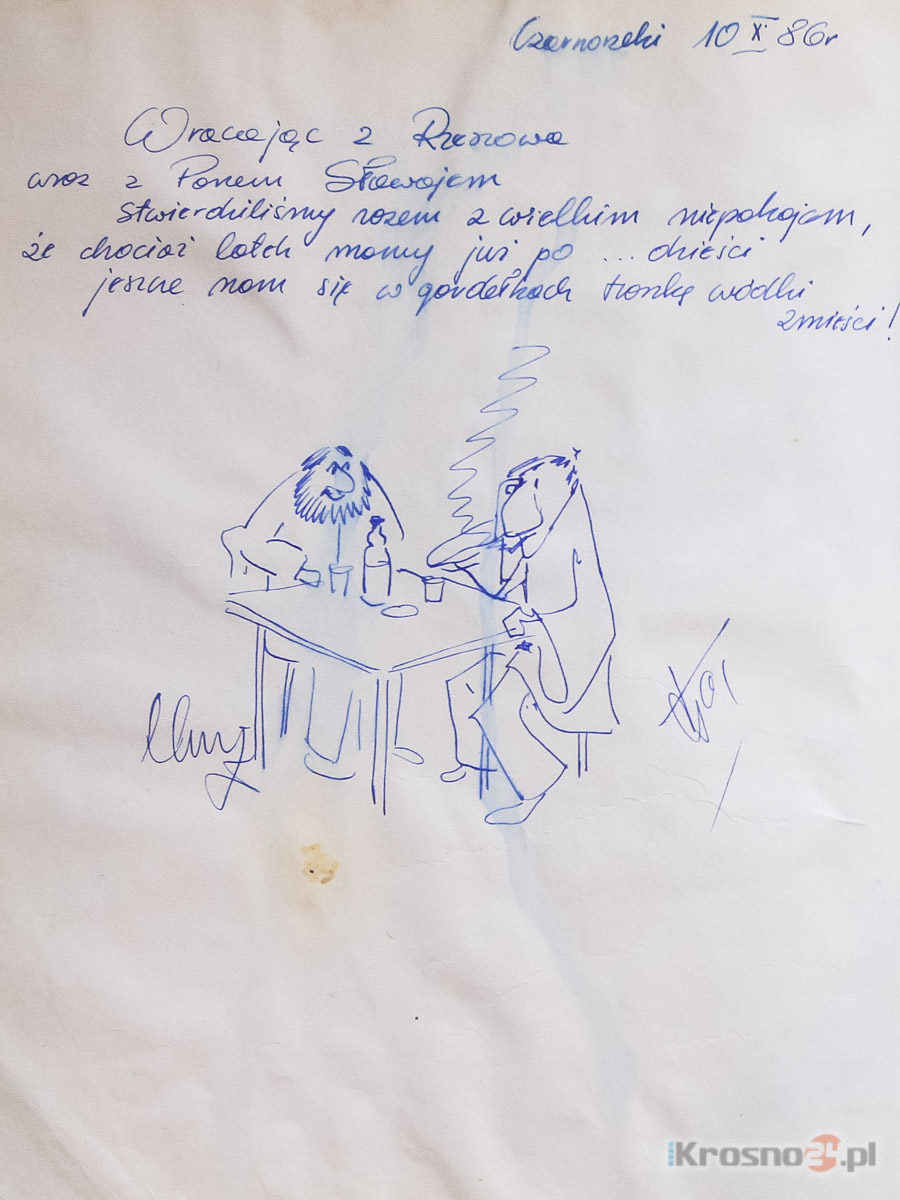 Czarnorzeki 10 X 86r
Wracając z Rzeszowa
wraz z Panem Sławojem
stwierdziliśmy razem z wielkim niepokojem,
że chociaż latek mamy już po ... dzieści
jeszcze nam się w gardełkach troszkę wódki
zmieści!
iKrosno24.pl